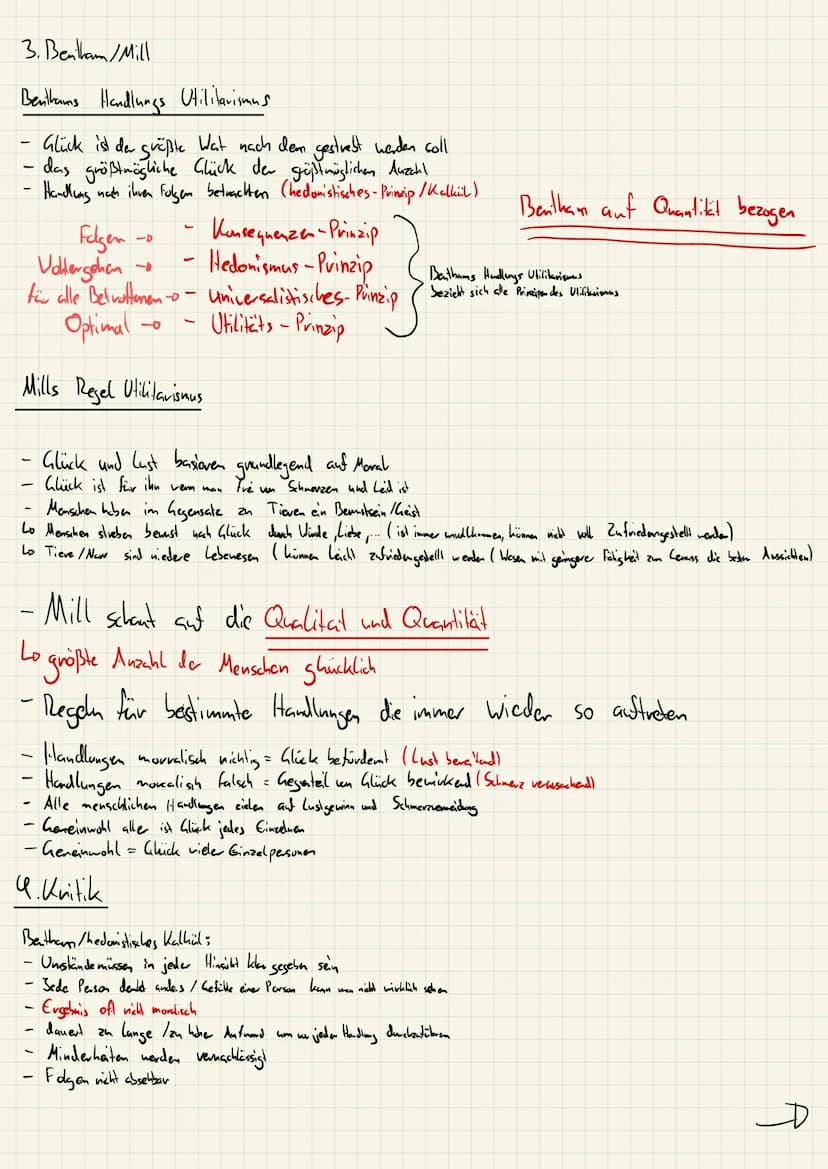 3. Bentham/Mill
Benthams Handlungs Utilitarismus
- Glück ist der größte Wert nach dem gestrebt werden soll
- das größtmögliche Glück der größtmöglichen Anzahl
- Handlung nach ihren Folgen betrachten (hedonistisches-Prinzip/Kalkül)
Bentham auf Quantität bezogen
Folgen → - Konsequenzen-Prinzip
Wohlergehen → - Hedonismus-Prinzip
für alle Betroffenen → - universalistisches-Prinzip
Optimal → - Utilitäts-Prinzip
Benthams Handlungs Utilitarismus
bezieht sich alle Prinzipien des Utilitarismus
Mills Regel Utilitarismus
- Glück und Lust basieren grundlegend auf Moral
- Glück ist für ihn wenn man frei von Schmerzen und Leid ist
- Menschen haben im Gegensatz zu Tieren ein Bewusstsein/Geist
↳ Menschen streben bewusst nach Glück durch Würde, Liebe,... (ist immer unvollkommen, können nicht voll Zufriedengestellt werden)
↳ Tiere/ sind niedere Lebewesen (können leicht zufriedengestellt werden (Wesen mit geringerer Fähigkeit zum Genuss die besten Aussichten)
- Mill schaut auf die Qualität und Quantität
↳ größte Anzahl der Menschen glücklich
- Regeln für bestimmte Handlungen die immer wieder so auftreten
- Handlungen morralisch richtig = Glück befördernt (Lust bereitend)
- Handlungen moralish falsch = Gegenteil von Glück bewirkend (Schmerz verursachend)
- Alle menschlichen Handlungen zielen auf Lustgewinn und Schmerzvermeidung
- Gemeinwohl aller ist Glück jedes Einzelnen
- Gemeinwohl = Glück vieler Einzelpersonen
4. Kritik
Bentham/hedonistisches Kalkül:
- Umstände müssen in jeder Hinsicht klar gegeben sein
- Jede Person denkt anders / Gefühle einer Person kann man nicht wirklich sehen
- Ergebnis oft nicht moralisch
- dauert zu lange /zu hoher Aufwand um zu jeder Handlung durchzuführen
- Minderheiten werden vernachlässigt
- Folgen nicht absehbar